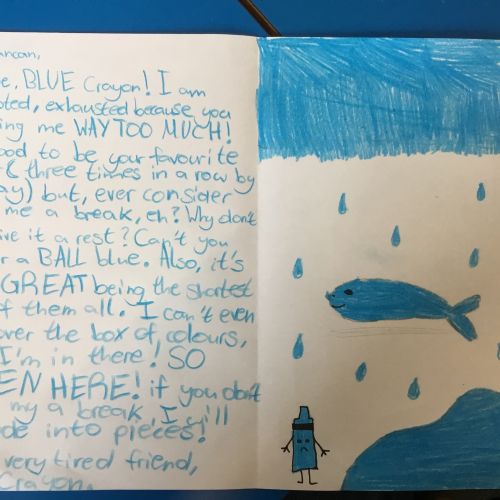 e, BLUE Crayon! I am
exhausted because you
ing me WAY TOO MUCH!
ood to be your favourite
three times in a row by
ay) but, ever consider
me a break, eh? Why don't
ive it a rest? Can't you
r a BALL blue. Also, it's
GREAT being the shortest
f them all. I can't even
over the box of colours,
I'm in there! SO
EN HERE! if you don't
my a break, I will
de into pieces!
very tired friend,
Crayon